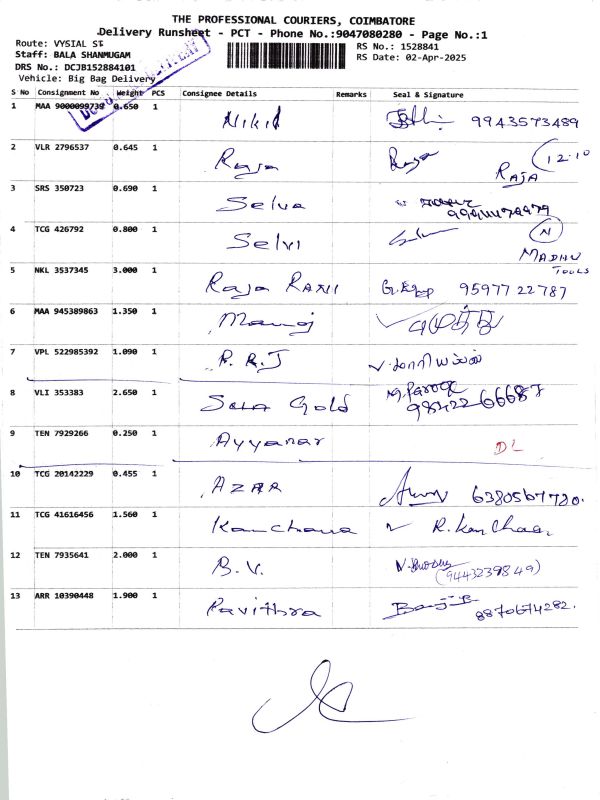 THE PROFESSIONAL COURIERS, COIMBATORE
Delivery Runsheet - PCT - Phone No.:9047080280 - Page No.:1
Route: VYSIAL ST
Staff: BALA SHANMUGAM
DRS No.: DCJB152884101
Vehicle: Big Bag Delivery
RS No.: 1528841
RS Date: 02-Apr-2025
S No Consignment No Weight PCS Consignee Details Remarks Seal & Signature
1 MAA 9000099739 0.650 1 Nikil 9943573489
2 VLR 2796537 0.645 1 Raja Raja 12:10
RAJA
3 SRS 350723 0.690 1 Selva
4 TCG 426792 0.800 1 Selvi N
MADHU
TOOLS
5 NKL 3537345 3.000 1 Raja RANI 95977 22787
6 MAA 945389863 1.350 1 Manoj
7 VPL 522985392 1.090 1 P.R.J
8 VLI 353383 2.650 1 Sela Gold 98422 66687
9 TEN 7929266 0.250 1 Ayyanar DL
10 TCG 20142229 0.455 1 AZAR 6380567720.
11 TCG 41616456 1.560 1 Kanchana R. Kanchana
12 TEN 7935641 2.000 1 B.V. (9443239849)
13 ARR 10390448 1.900 1 Pavithra 8870674282.